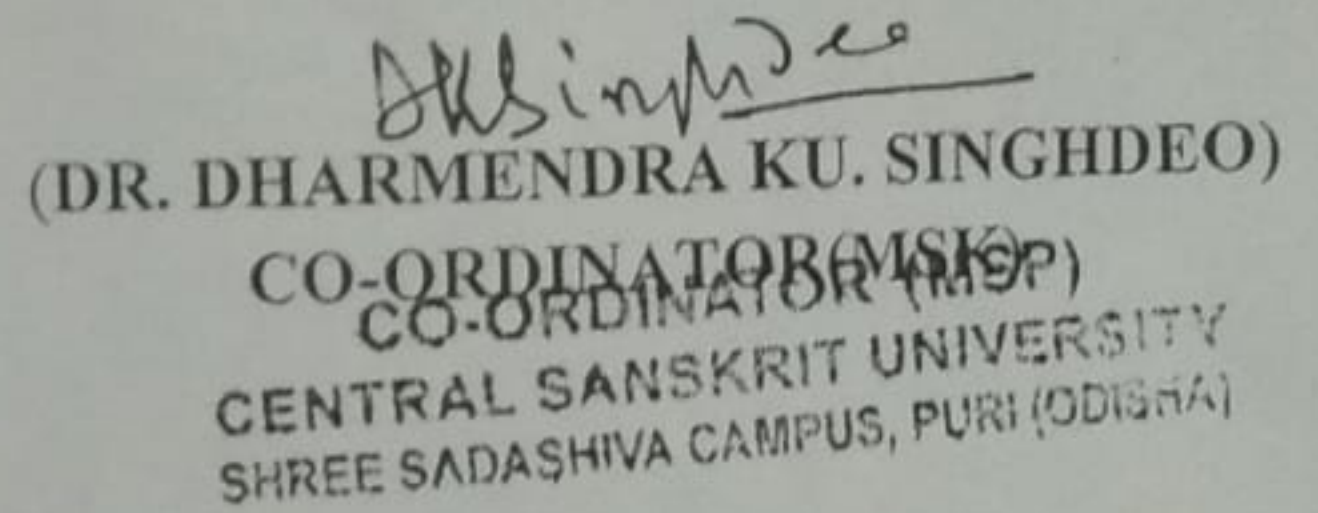 DKSinghDeo
(DR. DHARMENDRA KU. SINGHDEO)
CO-ORDINATOR(MSK)
CO-ORDINATOR (MSP)
CENTRAL SANSKRIT UNIVERSITY
SHREE SADASHIVA CAMPUS, PURI (ODISHA)